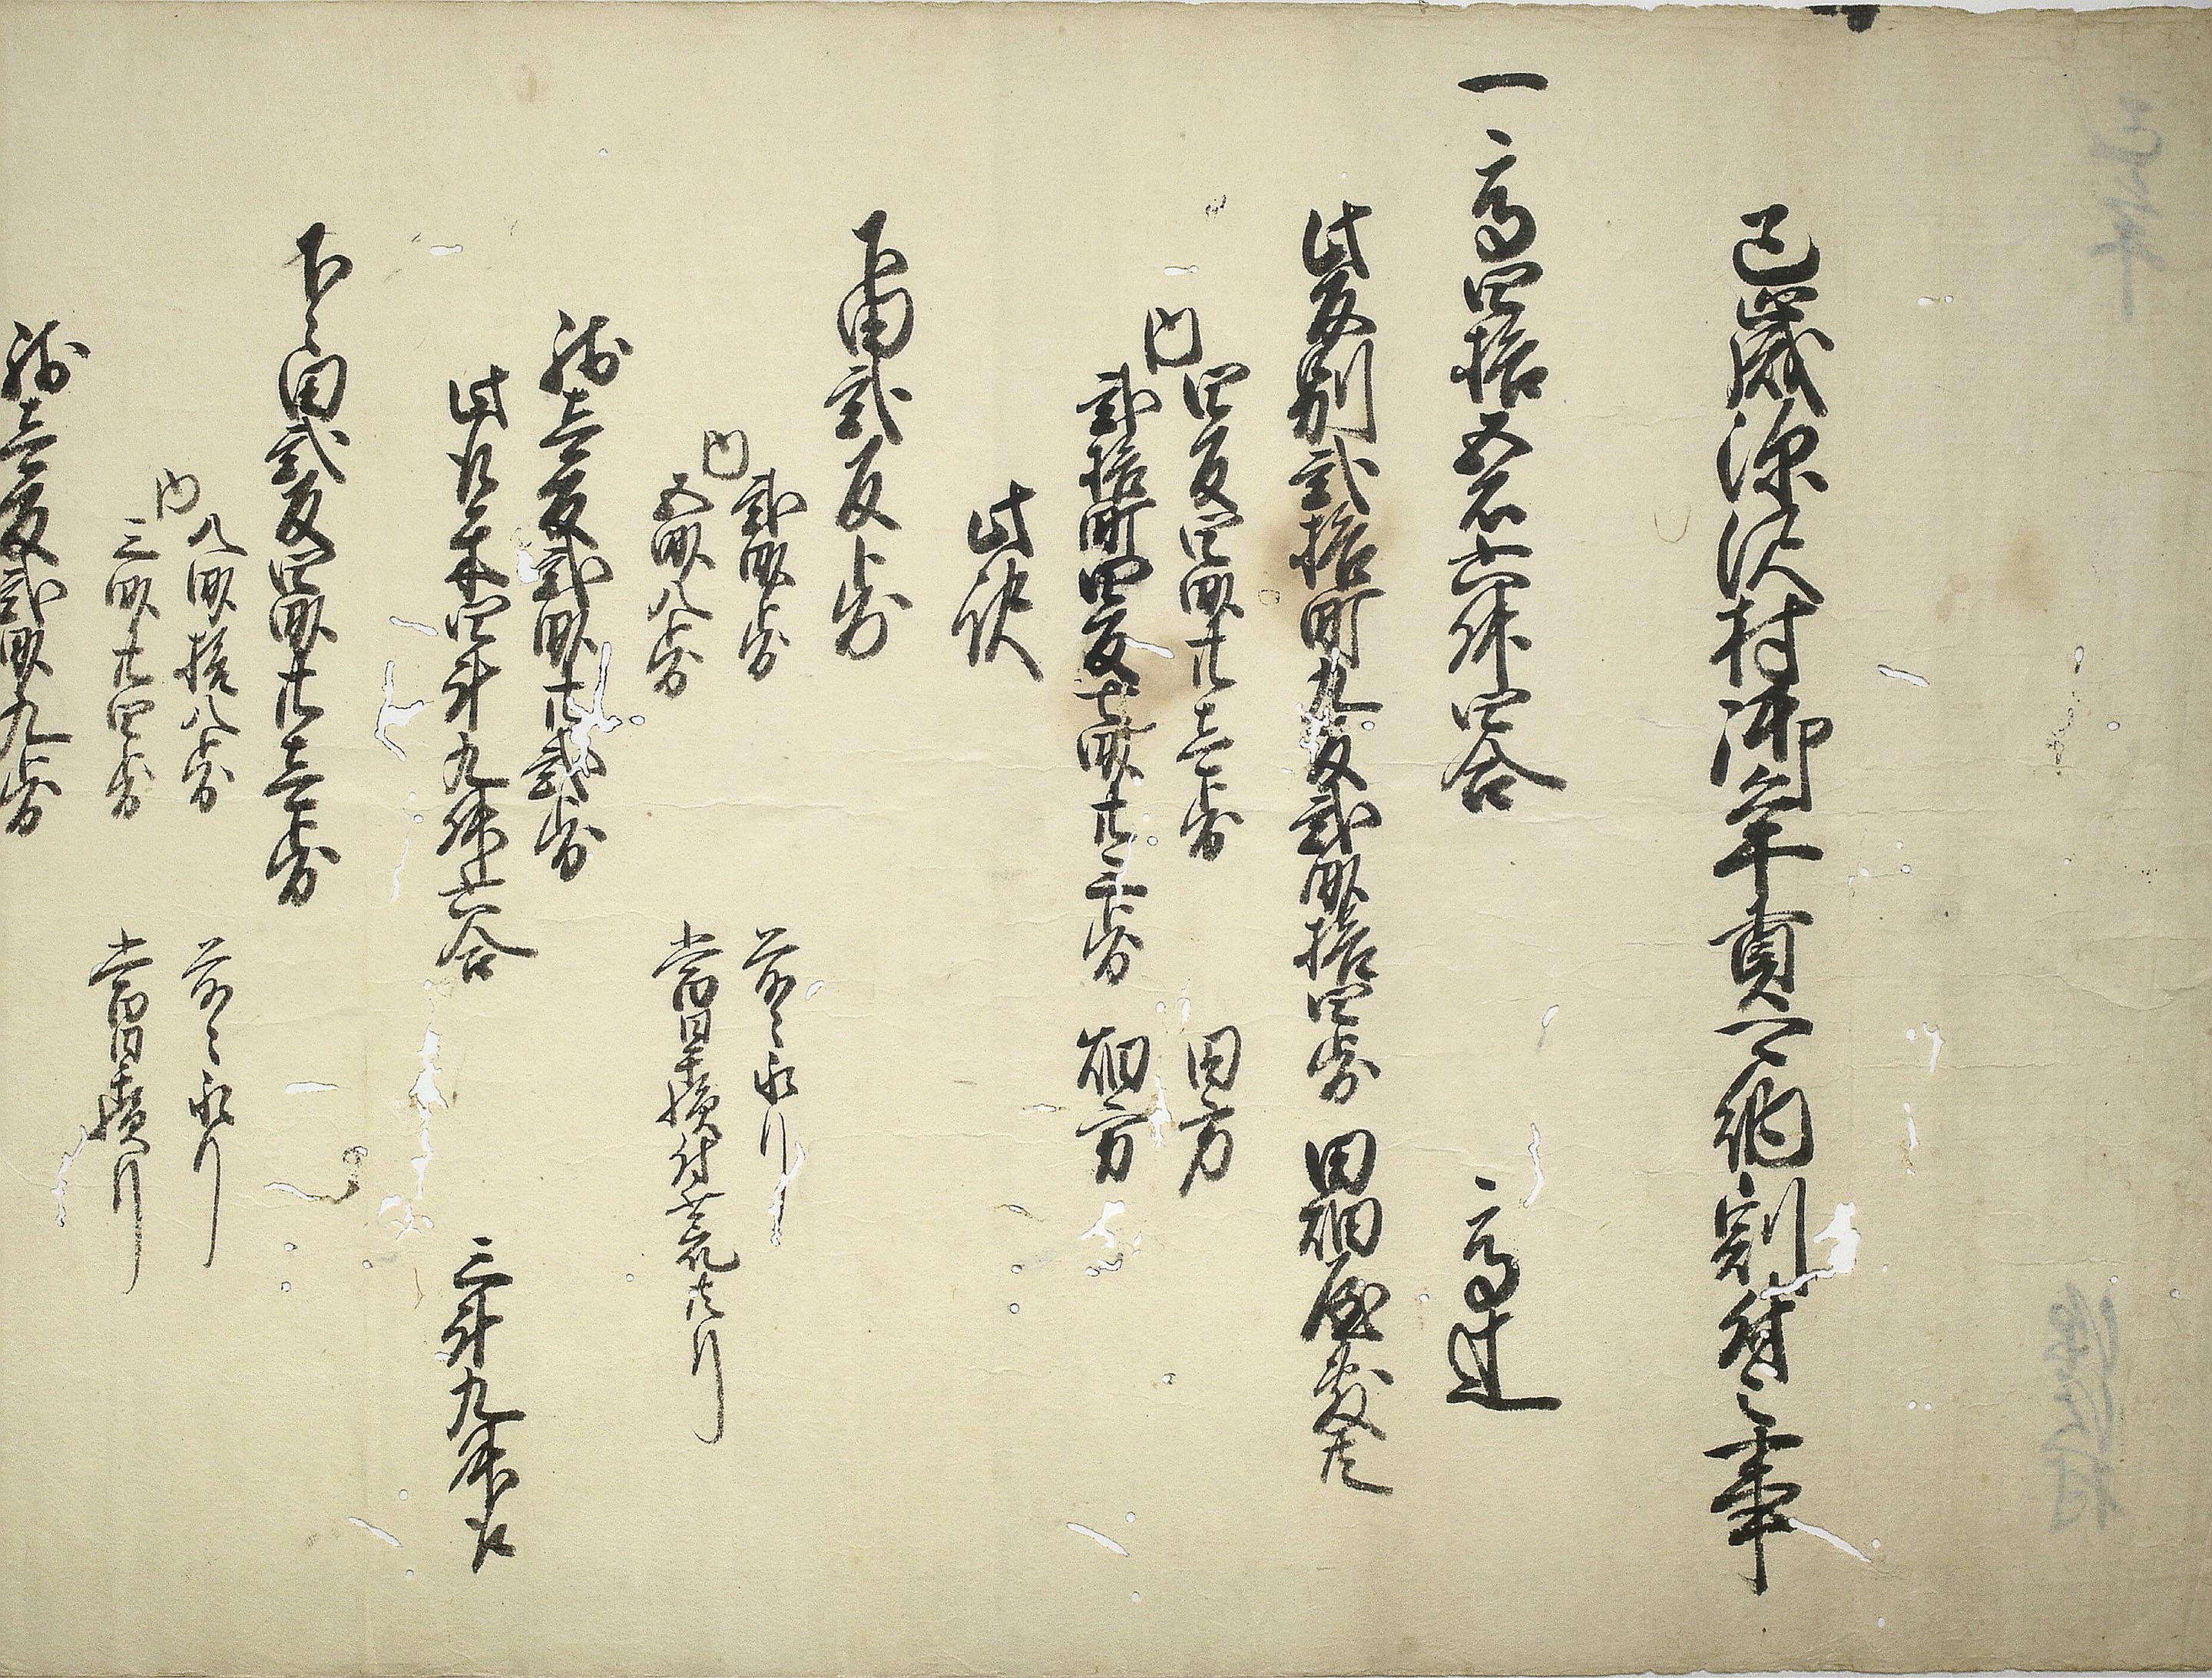 巳歳深沢村御年貢可納割付之事
一高四拾五石六升四合 高辻
此反別弐拾町九反弐畝拾四歩 田畑屋敷共
内
四反四畝廿壱歩 田方
弐拾町四反七畝廿三歩 畑方
此訳
下田弐反歩
内
弐畝歩 前々永引
五畝八歩 当巳旱損付荒共引
残壱反弐畝廿弐歩
此取米四斗九升六合 三斗九升取
下々田弐反四畝廿壱歩
内
八畝拾八歩 前々永引
三畝廿四歩 当巳旱損引
残壱反弐畝九歩